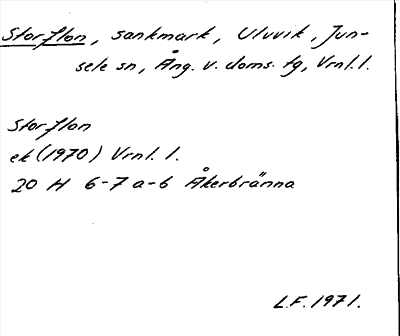 Storflon, sankmark, Uluvik, Jun-
sele sn, Ång. v. doms. fg, Vrnl. l.
Storflon
ek (1970) Vrnl. l.
20 H 6-7 a-b Åkerbränna
L.F. 1971.